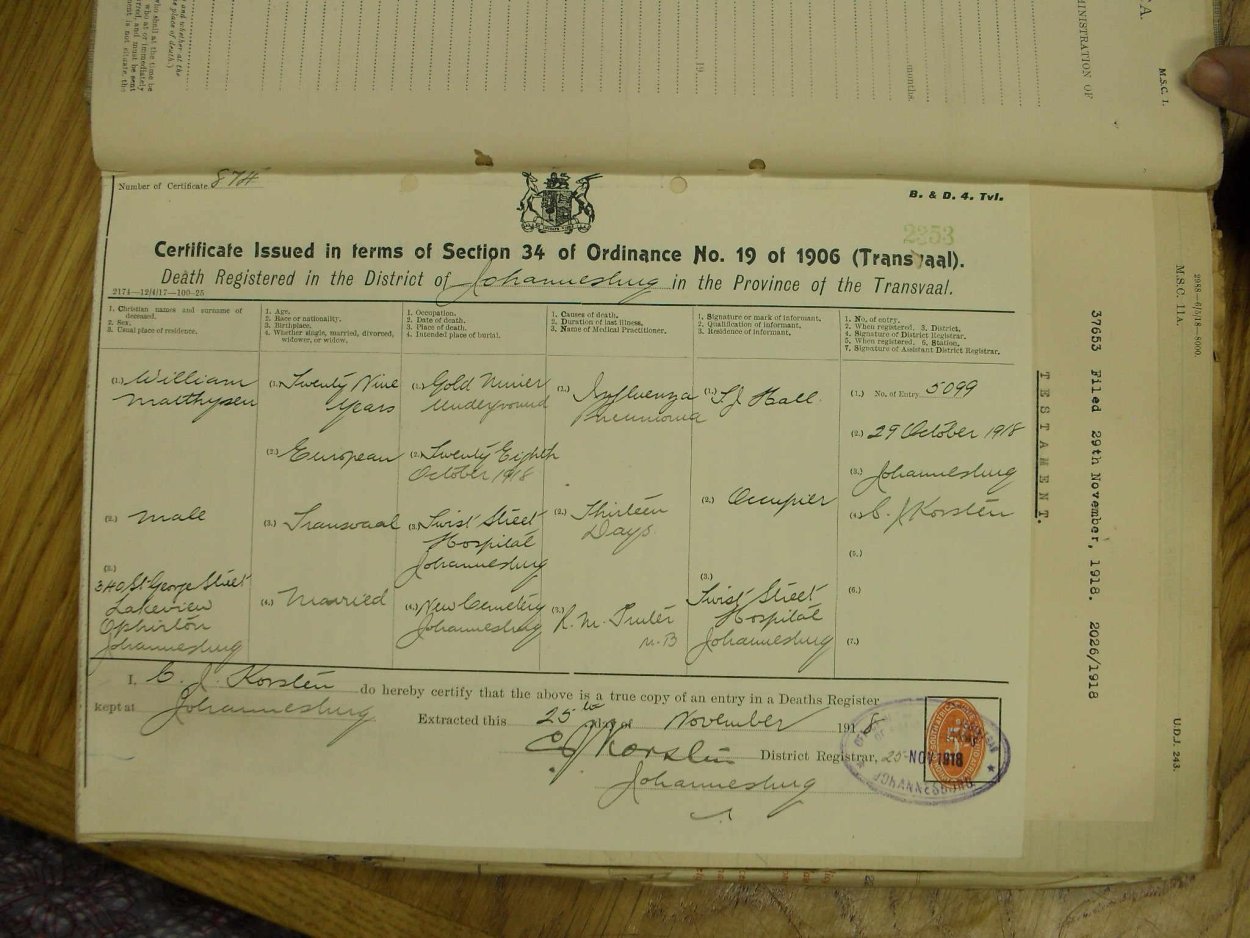 who shall at the time be
who at or immediately
tered, and must be sent
ment is not situate, the
and whether at the
he place of death.)
19
months.
MINISTRATION OF
A.
M.S.C. 1.
Number of Certificate 874
B. & D. 4. Tvl.
2353
Certificate Issued in terms of Section 34 of Ordinance No. 19 of 1906 (Trans aal).
Death Registered in the District of Johannesburg in the Province of the Transvaal.
2174—12/4/17—100-25
1. Christian names and surname of
deceased.
2. Sex.
3. Usual place of residence.
1. Age.
2. Race or nationality.
3. Birthplace.
4. Whether single, married, divorced,
widower, or widow.
1. Occupation.
2. Date of death.
3. Place of death.
4. Intended place of burial.
1. Causes of death.
2. Duration of last illness.
3. Name of Medical Practitioner.
1. Signature or mark of informant.
2. Qualification of informant.
3. Residence of informant.
1. No. of entry.
2. When registered. 3. District.
4. Signature of District Registrar.
5. When registered. 6. Station.
7. Signature of Assistant District Registrar.
(1.) William
Matthysen
(2.) Male
(3.)
340 St George Street
Lakeview
Ophirton
Johannesburg
(1.) Twenty Nine
Years
(2.) European
(3.) Transvaal
(4.) Married
(1.) Gold Miner
Underground
(2.) Twenty Eighth
October 1918
(3.) Twist Street
Hospital
Johannesburg
(4.) New Cemetery
Johannesburg
(1.) Influenza
Pneumonia
(2.) Thirteen
Days
(3.) R. M. Truter
M.B
(1.) T J Hall.
(2.) Occupier
(3.)
Twist Street
Hospital
Johannesburg
(1.) No. of Entry 5099
(2.) 29 October 1918
(3.) Johannesburg
(4.) C. J Korsten
(5.)
(6.)
(7.)
I, C. J. Korsten do hereby certify that the above is a true copy of an entry in a Deaths Register
kept at Johannesburg
Extracted this 25th day of November 1918
C J Korsten District Registrar,
Johannesburg
25 NOV 1918
JOHANNESBURG
TESTAMENT.
37653 Filed 29th November, 1918. 2026/1918
M.S.C. 11A.
2988—6/5/18—8000.
U.D.J. 243.